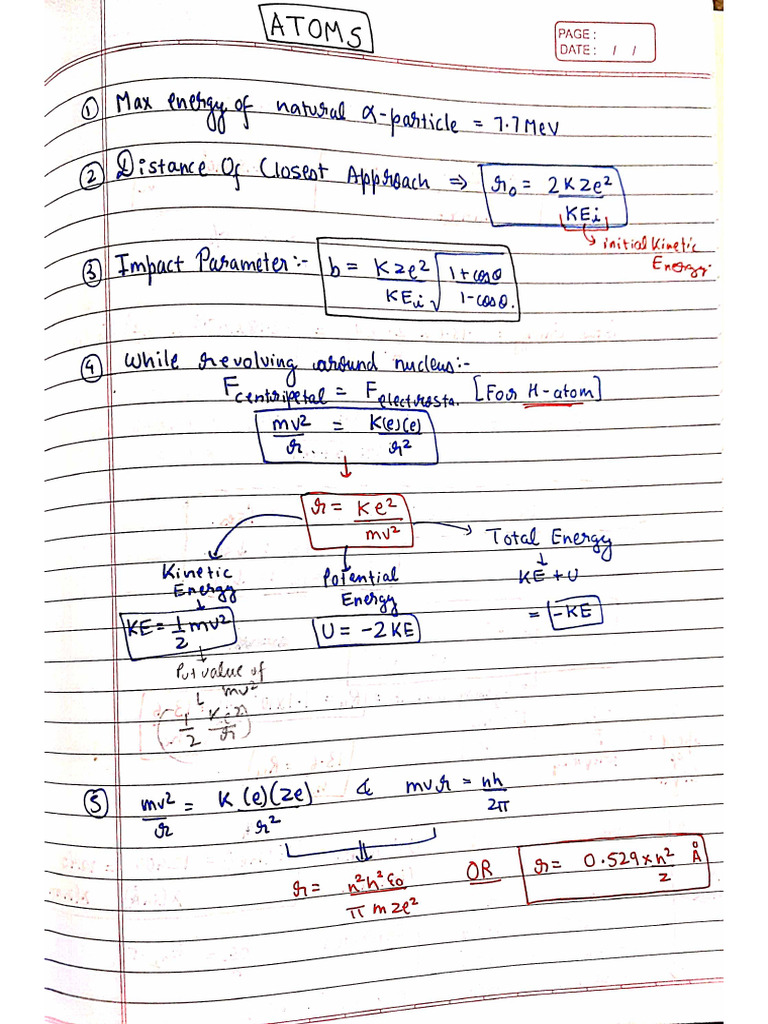 ATOMS
PAGE:
DATE: / /
① Max energy of natural α-particle = 7.7 MeV
② Distance Of Closest Approach ⇒ r₀ = 2KZe² / KEi
↳ initial Kinetic Energy.
③ Impact Parameter:- b = KZe² / KEi √(1+cosθ / 1-cosθ.)
④ While revolving around nucleus:-
Fcentripetal = Felectrosta. [For H-atom]
mv² / r. = K(e)(e) / r²
↓
r = Ke² / mv²
Kinetic Energy
Potential Energy
→ Total Energy
↓
KE = 1/2 mv²
U = -2KE
KE + U
= -KE
Put value of mv²
↓
⑤ mv² / r = K(e)(Ze) / r² & mvr = nh / 2π
⇓
r = n²h²ε₀ / π m ze² OR r = 0.529 × n² / z Å